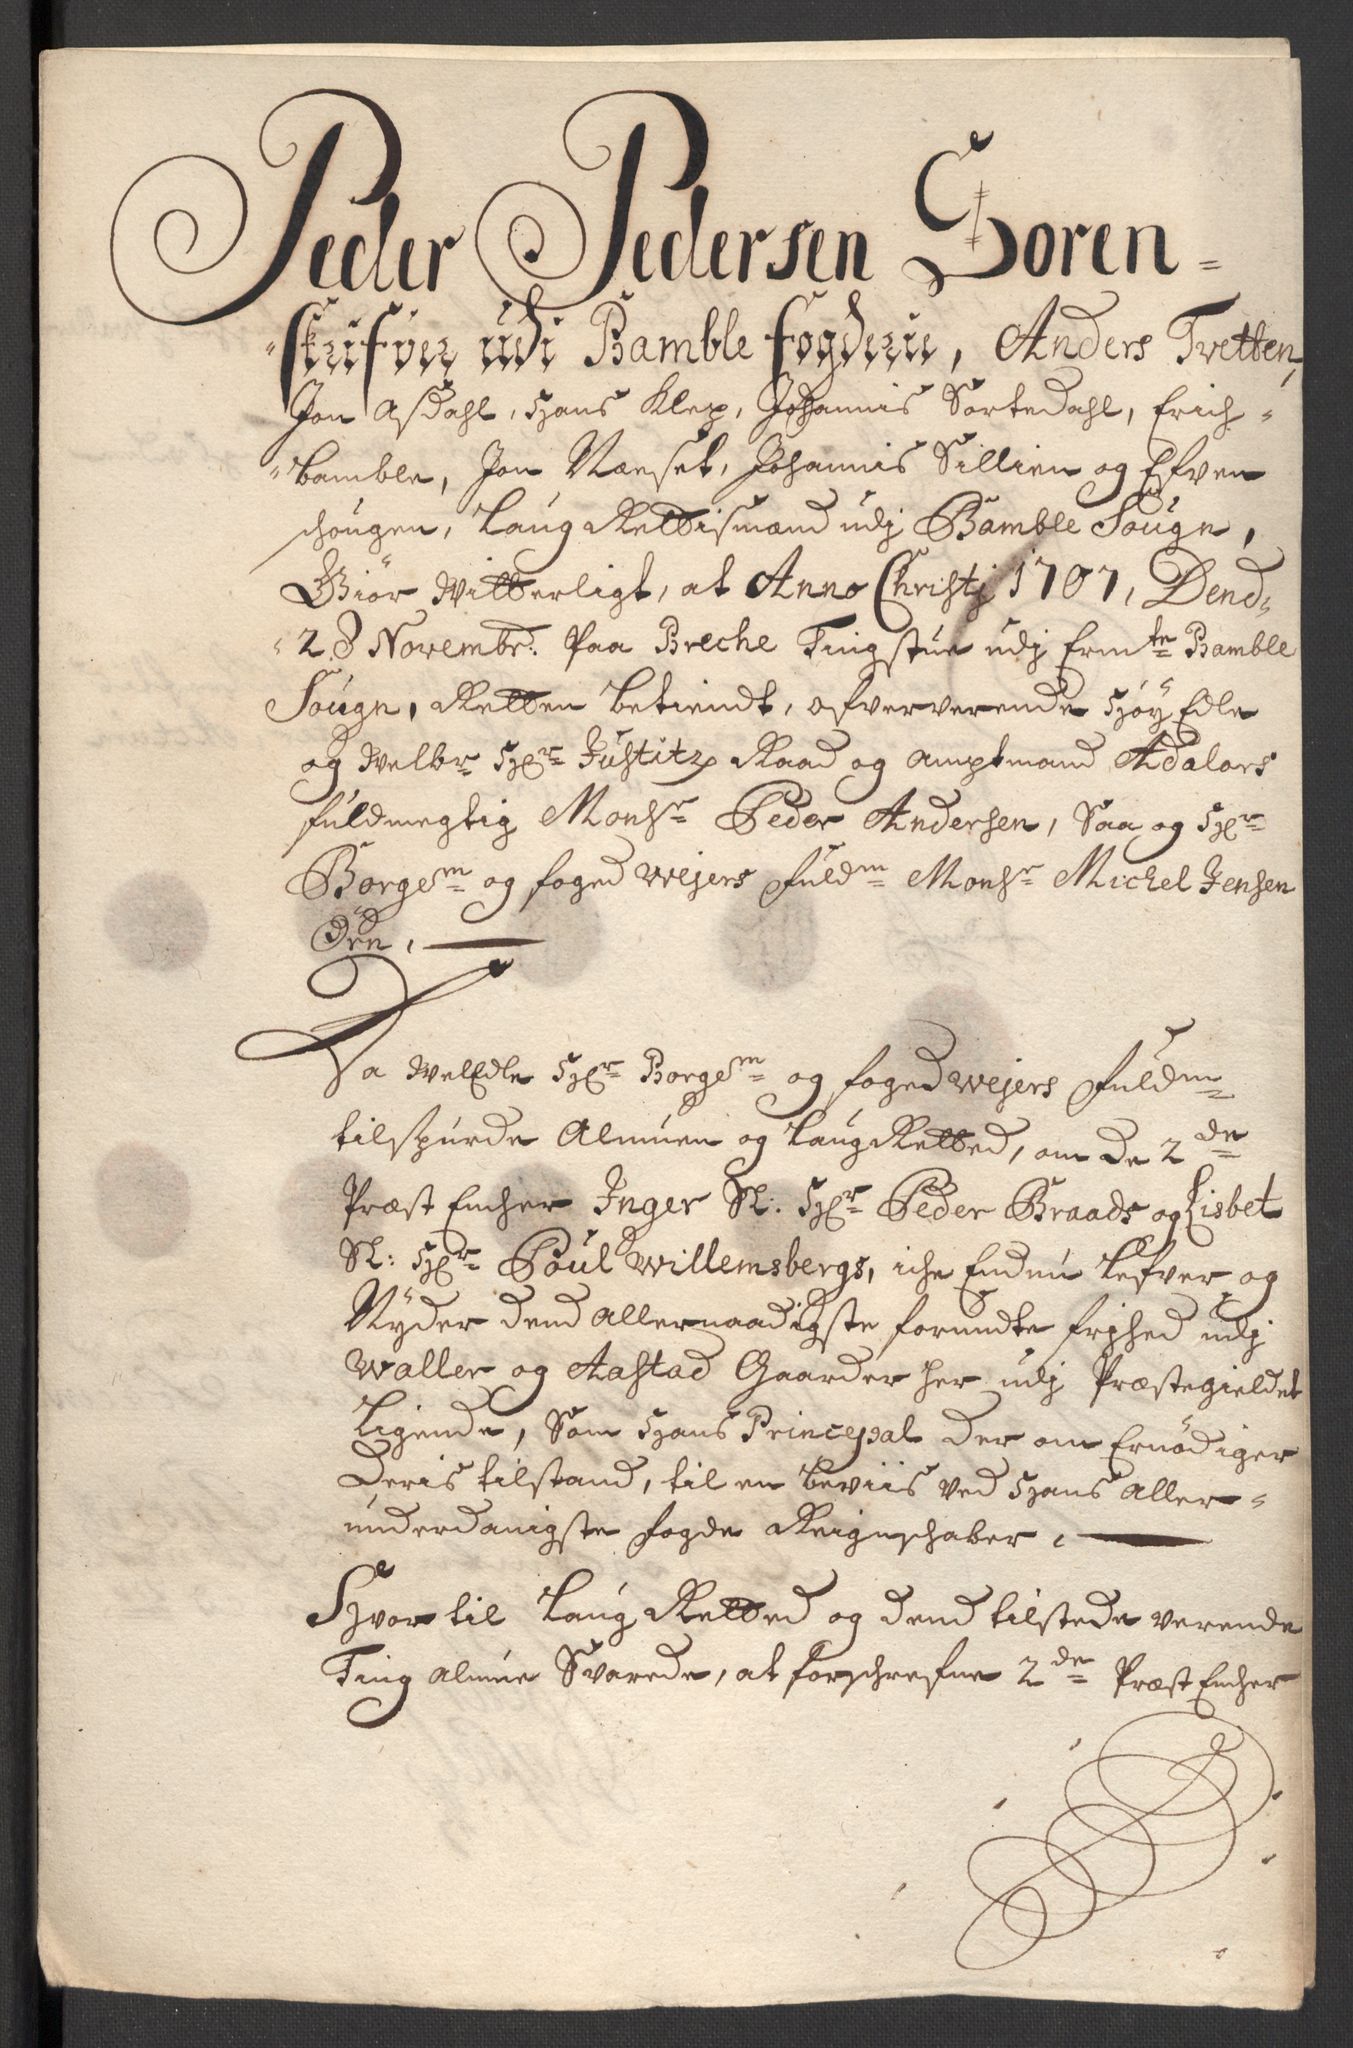 Peder Pedersen Soren=
=skrifver udi Bamble fogderie, Anders Tvetten,
Jon Asdahl, Hans Klep, Johannis Sortedahl, Erich=
=bamble, Jon Næset, Johannis Sillien og Efven
schougen, LaugRettismænd udj Bamble Sougn,
Giør Witterligt, at Anno Christj 1707, Dend=
=28 Novembr: Paa Breche Tingstue udj Ermte Bamble
Sougn, Retten betiendt, ofververende Høy Edle
og Welbr Hr Justitz Raad og Amptmand Adalors
fuldmegtig Monsr Peder Andersen, Saa og Hr
Borgem og foged Wejers fuldm Monsr Michel Jensen
Ören,
Da WelEdle Hr Borgem og foged Wejers fuldm
tilspurde Almuen og LaugRetted, om De 2de
Præst Encher Inger Sl: Hr Peder Braads og Lisbet
Sl: Hr Poul Willemsbergs, iche Endnu Lefver og
Nyder dend allernaadigste forundte frjhed udj
Waller og Aastad Gaarder her udj Præstegieldet
Ligende, Som Hans Principal der om Ernödiger
Deris tilstand, til en beviis ved Hans aller=
underdanigste fogde Reignschaber,
Hvortil LaugRetted og dend tilstede verende
Ting almue Svarede, at forschrefne 2de Præst Encher